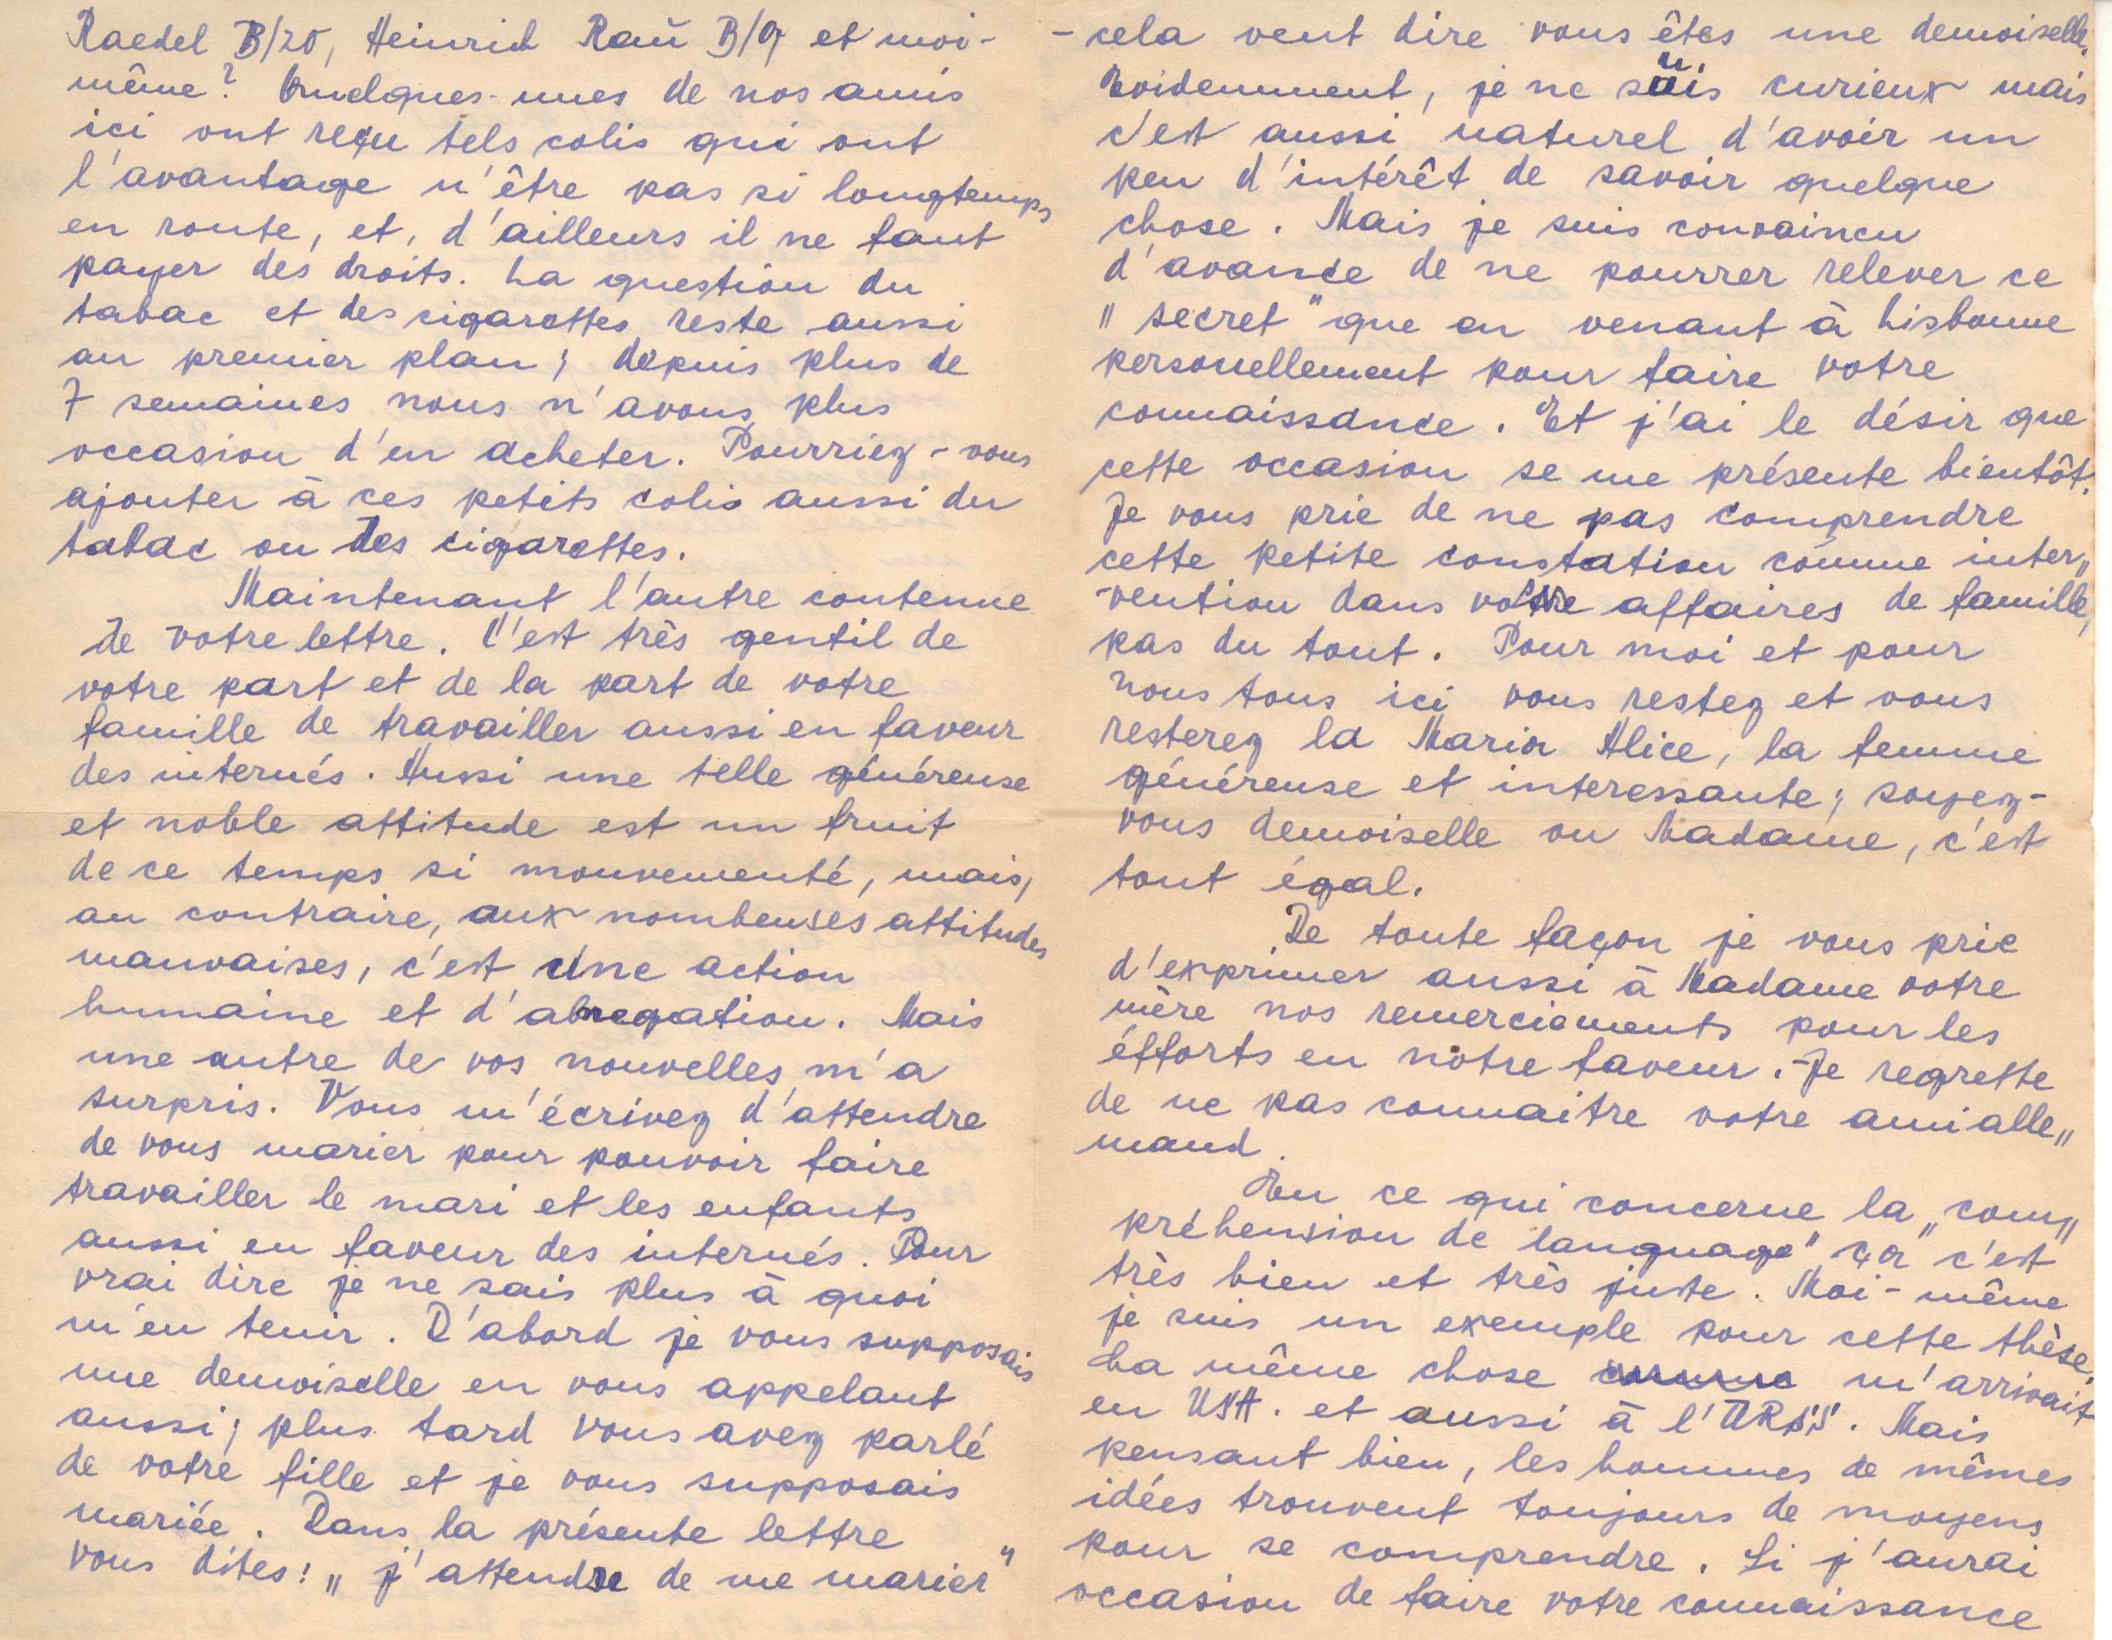 Raedel B/20, Heinrich Raŭ B/9 et moi-
même? Quelques-unes de nos amis
ici ont reçu tels colis qui ont
l'avantage n'être pas si longtemps
en route, et, d'ailleurs il ne faut
payer des droits. La question du
tabac et des cigarettes reste aussi
au premier plan; depuis plus de
7 semaines nous n'avons plus
occasion d'en acheter. Pourriez-vous
ajouter à ces petits colis aussi du
tabac ou des cigarettes.
Maintenant l'autre contenue
de votre lettre. C'est très gentil de
votre part et de la part de votre
famille de travailler aussi en faveur
des internés. Aussi une telle généreuse
et noble attitude est un fruit
de ce temps si mouvementé, mais,
au contraire, aux nombeuses attitudes
mauvaises, c'est une action
humaine et d'abnegation. Mais
une autre de vos nouvelles m'a
surpris. Vous m'écrivez d'attendre
de vous marier pour pouvoir faire
travailler le mari et les enfants
aussi en faveur des internés. Pour
vrai dire je ne sais plus à quoi
m'en tenir. D'abord je vous supposais
une demoiselle en vous appelant
aussi; plus tard vous avez parlé
de votre fille et je vous supposais
mariée. Dans la présente lettre
vous dites: „j'attendre de me marier"
- cela veut dire vous êtes une demoiselle.
Evidemment, je ne suis curieux mais
c'est aussi naturel d'avoir un
peu d'intérêt de savoir quelque
chose. Mais je suis convaincu
d'avance de ne pourrer relever ce
„secret" que en venant à Lisbonne
personellement pour faire votre
connaissance. Et j'ai le désir que
cette occasion se me présente bientôt.
Je vous prie de ne pas comprendre
cette petite constatation comme inter„
vention dans votre affaires de famille,
pas du tout. Pour moi et pour
nous tous ici vous restez et vous
resterez la Maria Alice, la femme
généreuse et interessante; soyez-
vous demoiselle ou Madame, c'est
tout égal.
De toute façon je vous prie
d'exprimer aussi à Madame votre
mère nos remerciements pour les
éfforts en notre faveur. -Je regrette
de ne pas connaitre votre ami alle„
mand.
En ce qui concerne la „com„
préhension de language" ça c'est
très bien et très juste. Moi-même
je suis un exemple pour cette thèse.
La même chose m'arrivait
en USA. et aussi à l'URSS. Mais
pensant bien, les hommes de mêmes
idées trouvent toujours de moyens
pour se comprendre. Si j'aurai
occasion de faire votre connaissance